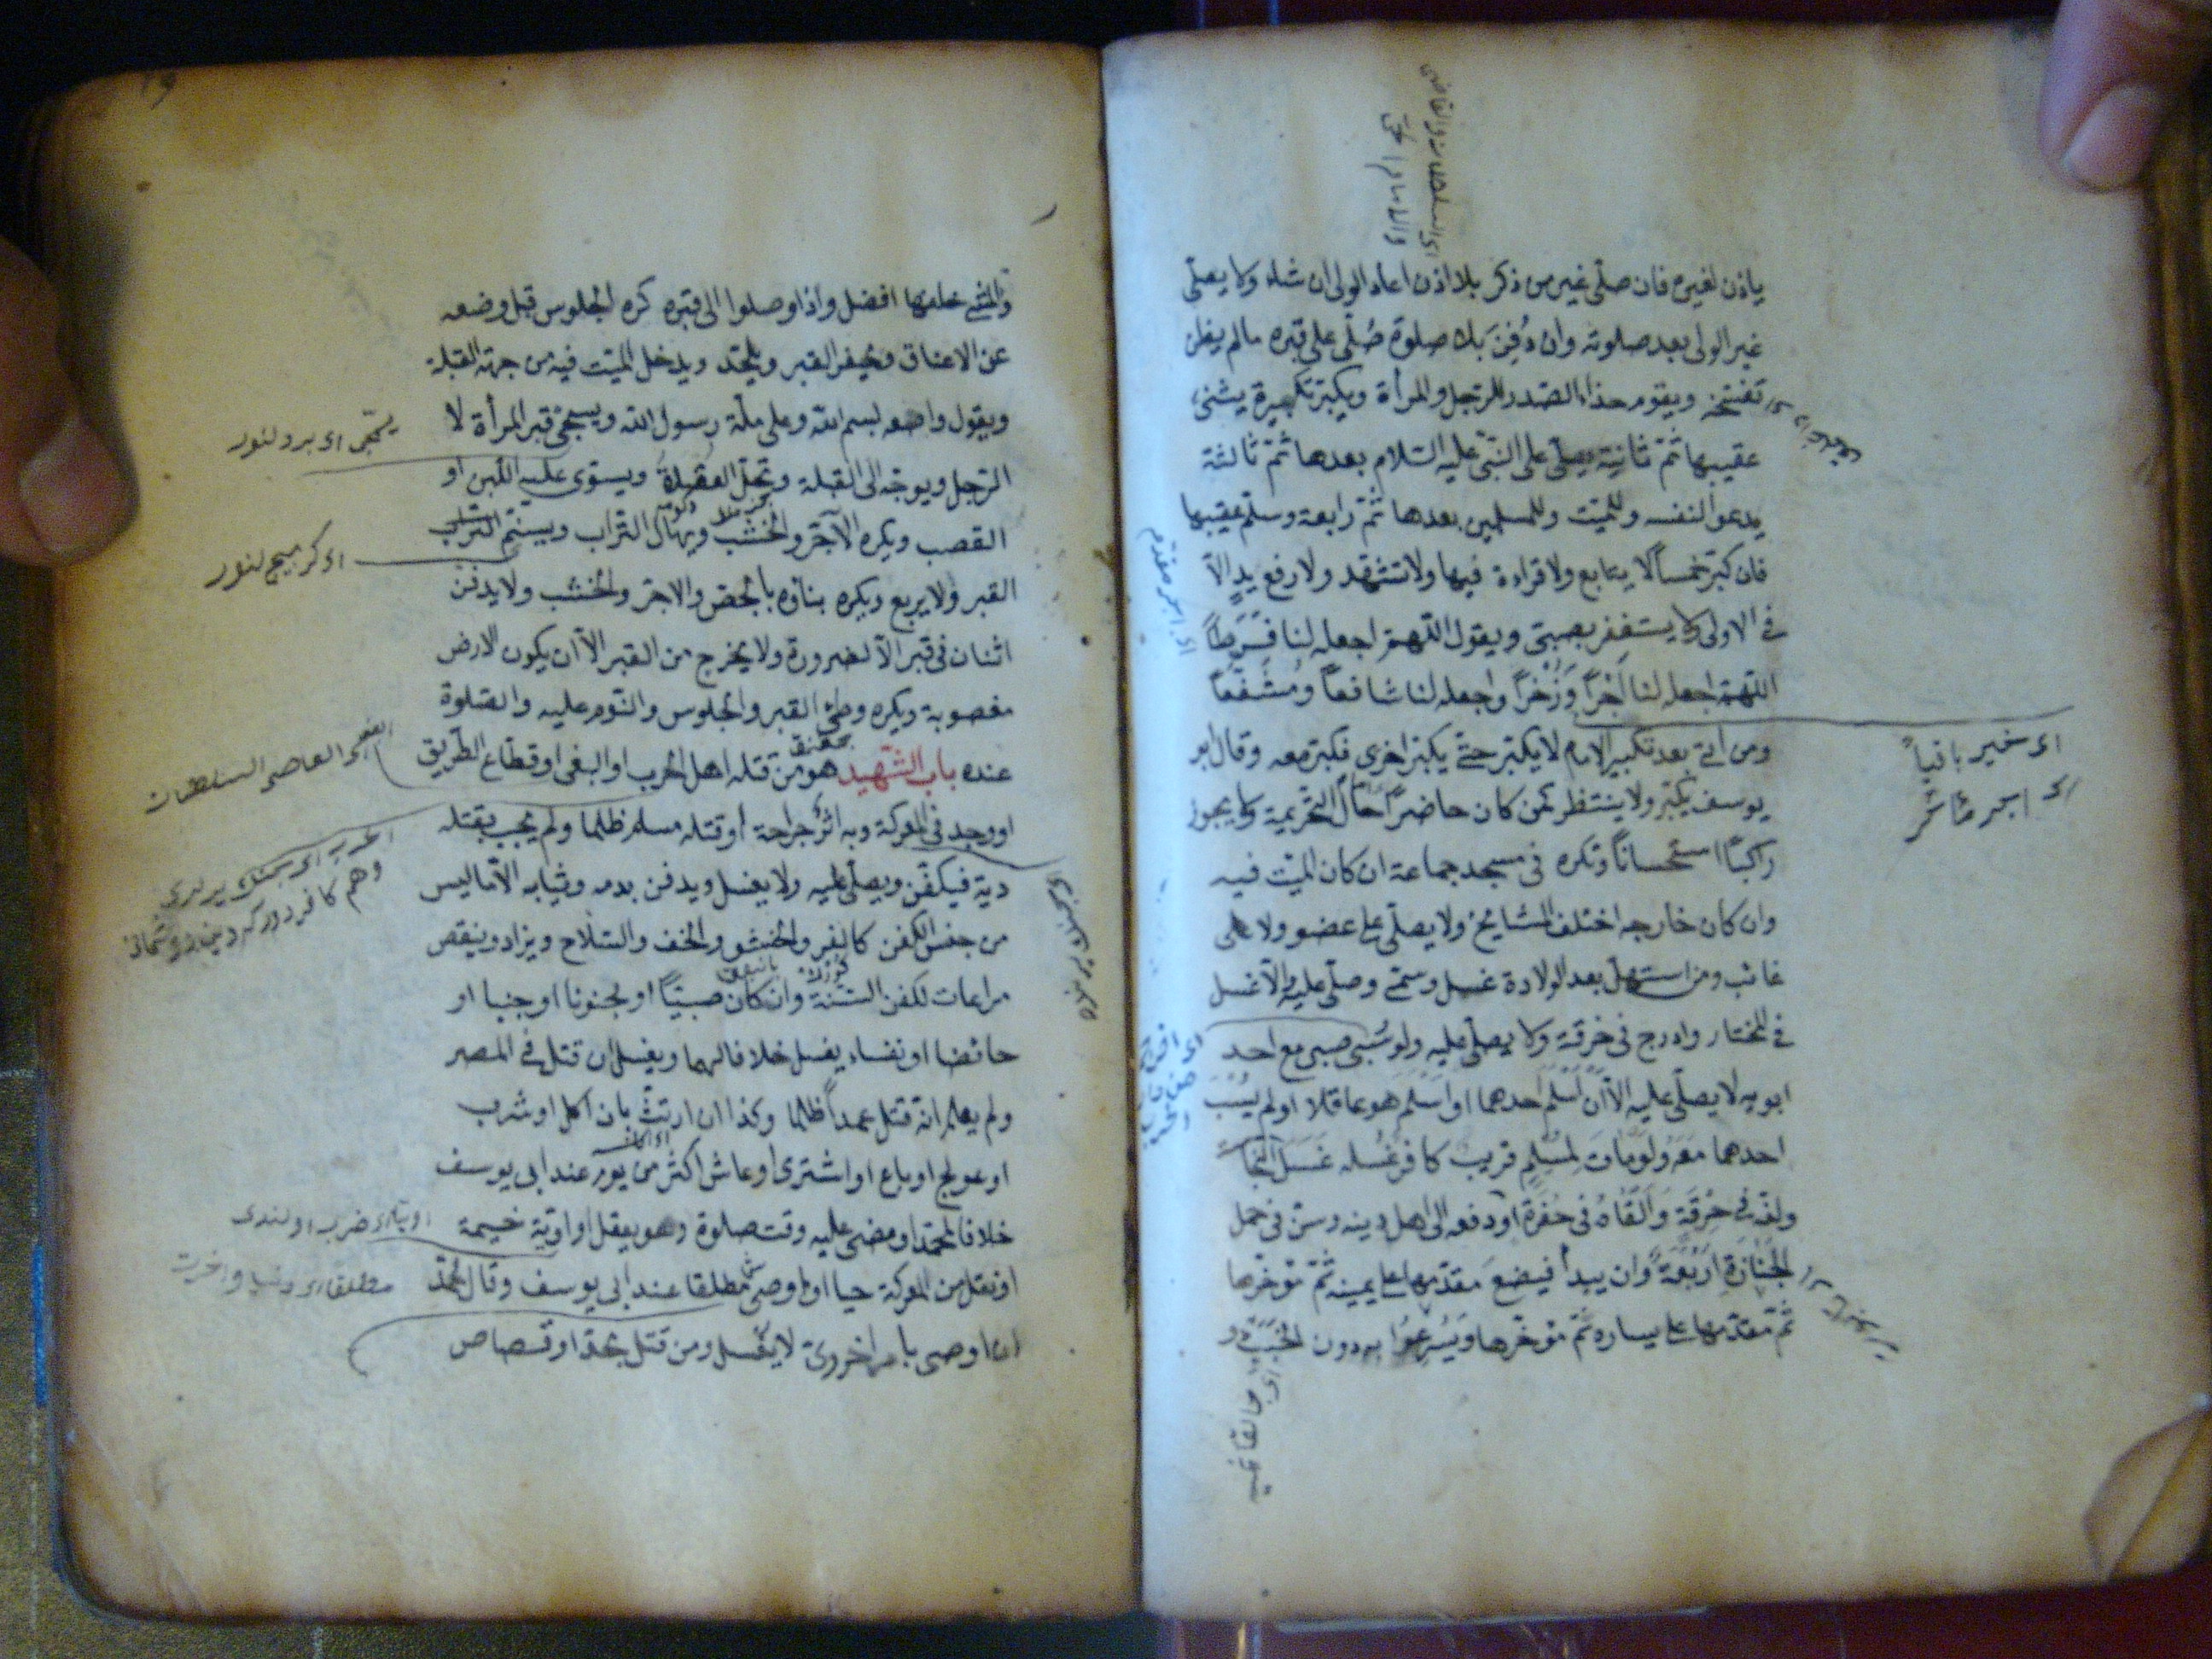 ياذن لغيره فان صلّى غير من ذكر بلا اذن اعاد الولى ان شاء ولا يصلّى
غير الولى بعد صلوته وان دُفِنَ بلا صلوة صُلّى على قبره مالم يظن
تفسّخه ويقوم حذاء الصّدر للرّجل والمرأة ويكبّر تكبيرة يثنى
عقيبها ثمّ ثانية يصلّى على النّبىّ عليه السّلام بعدها ثمّ ثالثة
يدعو لنفسه وللميّت وللمسلمين بعدها ثمّ رابعة وسلّم عقيبها
فان كبّر خمساً لا يتابع ولا قراءة فيها ولا تشهّد ولا رفع يد الّا
فى الاولى ولا يستغفر لصبىّ ويقول اللّهمّ اجعله لنا فَرَطاً
اللّهمّ اجعله لنا اَجْراً وَذُخْراً واجعله لنا شافعاً ومُشَفَّعاً
ومن اتى بعد تكبير الامام لا يكبّر حتّى يكبّر اخرى فكبّر معه وقال ابو
يوسف يكبّر ولا ينتظر كمن كان حاضراً حَالَ التّحريمة ولا يجوز
راكباً استحساناً وتكره فى مسجد جماعة ان كان الميّت فيه
وان كان خارجه اختلف المشايخ ولا يصلّى على عضو ولا على
غائب ومن استهلّ بعد الولادة غسل وسمّى وصلّى عليه والّا غسل
فى المختار وادرج فى خرقة ولا يصلّى عليه ولو سُبى صبى مع احد
ابويه لا يصلّى عليه الّا ان اَسْلَمَ احدهما او اَسْلَمَ هو عاقلا او لم يُسْبَ
احدهما مَعَهُ ولو مات لِمُسْلِمٍ قريب كافر غسله غَسْلَ النّجاسة
ولفّه فى خِرْقَةٍ وَاَلْقَاهُ فى حُفْرَة اودفعه الى اهل دينه وسنّ فى حمل
الجَنَازَةِ اَرْبَعَةٌ وان يبدأ فيضعَ مقدّمها على يمينه ثمّ مؤخّرها
ثمّ مقدّمها على يساره ثمّ مؤخّرها ويُسْرِعُوا به دون الخَبَبِ و
اى خير باقياً
والمشى خلفها افضل واذا وصلوا الى قبره كره الجلوس قبل وضعه
عن الاعناق ويحفر القبر ويلحّد ويدخل الميّت فيه من جهة القبلة
ويقول واضعه بسم الله وعلى ملّة رسول الله ويسجّى قبر المرأة لا
الرّجل ويوجّه الى القبلة وتحلّ العقدة ويسوّى عليه اللّبن او
القصب ويكره الآجرّ والخشب ويهال التّراب ويسنّم
القبر ولا يربع ويكره بناؤه بالجصّ والاجرّ والخشب ولا يدفن
اثنان فى قبر الّا لضرورة ولا يخرج من القبر الّا ان يكون الارض
مغصوبة ويكره وطئ القبر والجلوس والنّوم عليه والصّلوة
عنده باب الشّهيد هو من قتله اهل الحرب او البغى او قطّاع الطّريق
او وجد فى المعركة وبه اثر جراحة او قتله مسلم ظلما ولم يجب بقتله
دية فيكفّن ويصلّى عليه ولا يغسل ويدفن بدمه وثيابه الّا ما ليس
من جنس الكفن كالفرو والحشو والخف والسّلاح ويزاد وينقص
مراعات لكفن السّنّة وان كان صبيّاً او مجنونا او جنبا او
حائضا او نفساء يغسل خلافا لهما ويغسل ان قتل فى المصر
ولم يعلم انّه قتل عمداً ظلما وكذا ان ارتثّ بان اكل او شرب
او عولج او باع او اشترى او عاش اكثر من يوم عند ابى يوسف
خلافا لمحمّد او مضى عليه وقت صلوة وهو يعقل او اوته خيمة
او نقل من المعركة حيا او اوصى مطلقا عند ابى يوسف وقال محمّد
ان اوصى بامر اخروىّ لا يغسل ومن قتل بحدّ او قصاص